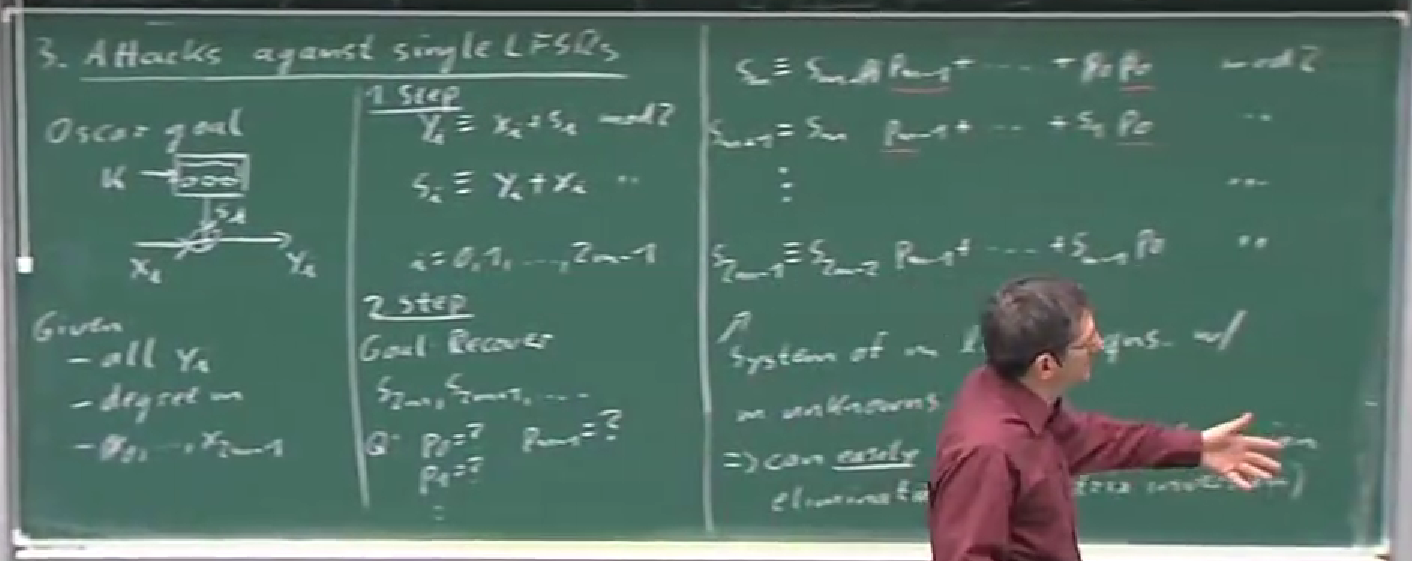 3. Attacks against single LFSRs
Oscar goal
K
s_i
x_i y_i
Given
- all y_i
- degree m
- x_0, ..., x_{2m-1}
1 Step
y_i ≡ x_i + s_i mod 2
s_i ≡ y_i + x_i "
i = 0, 1, ..., 2m-1
2 step
Goal Recover
s_{2m}, s_{2m+1}, ....
Q: p_0 = ? p_{m-1} = ?
p_1 = ?
:
s_m ≡ p_{m-1} + ... + p_0 mod 2
s_{m+1} ≡ s_m p_{m-1} + ... + s_1 p_0 "
⋮ "
s_{2m-1} ≡ s_{2m-2} p_{m-1} + ... + s_{m-1} p_0 "
System of m eqns. w/
m unknowns
⇒ can easely